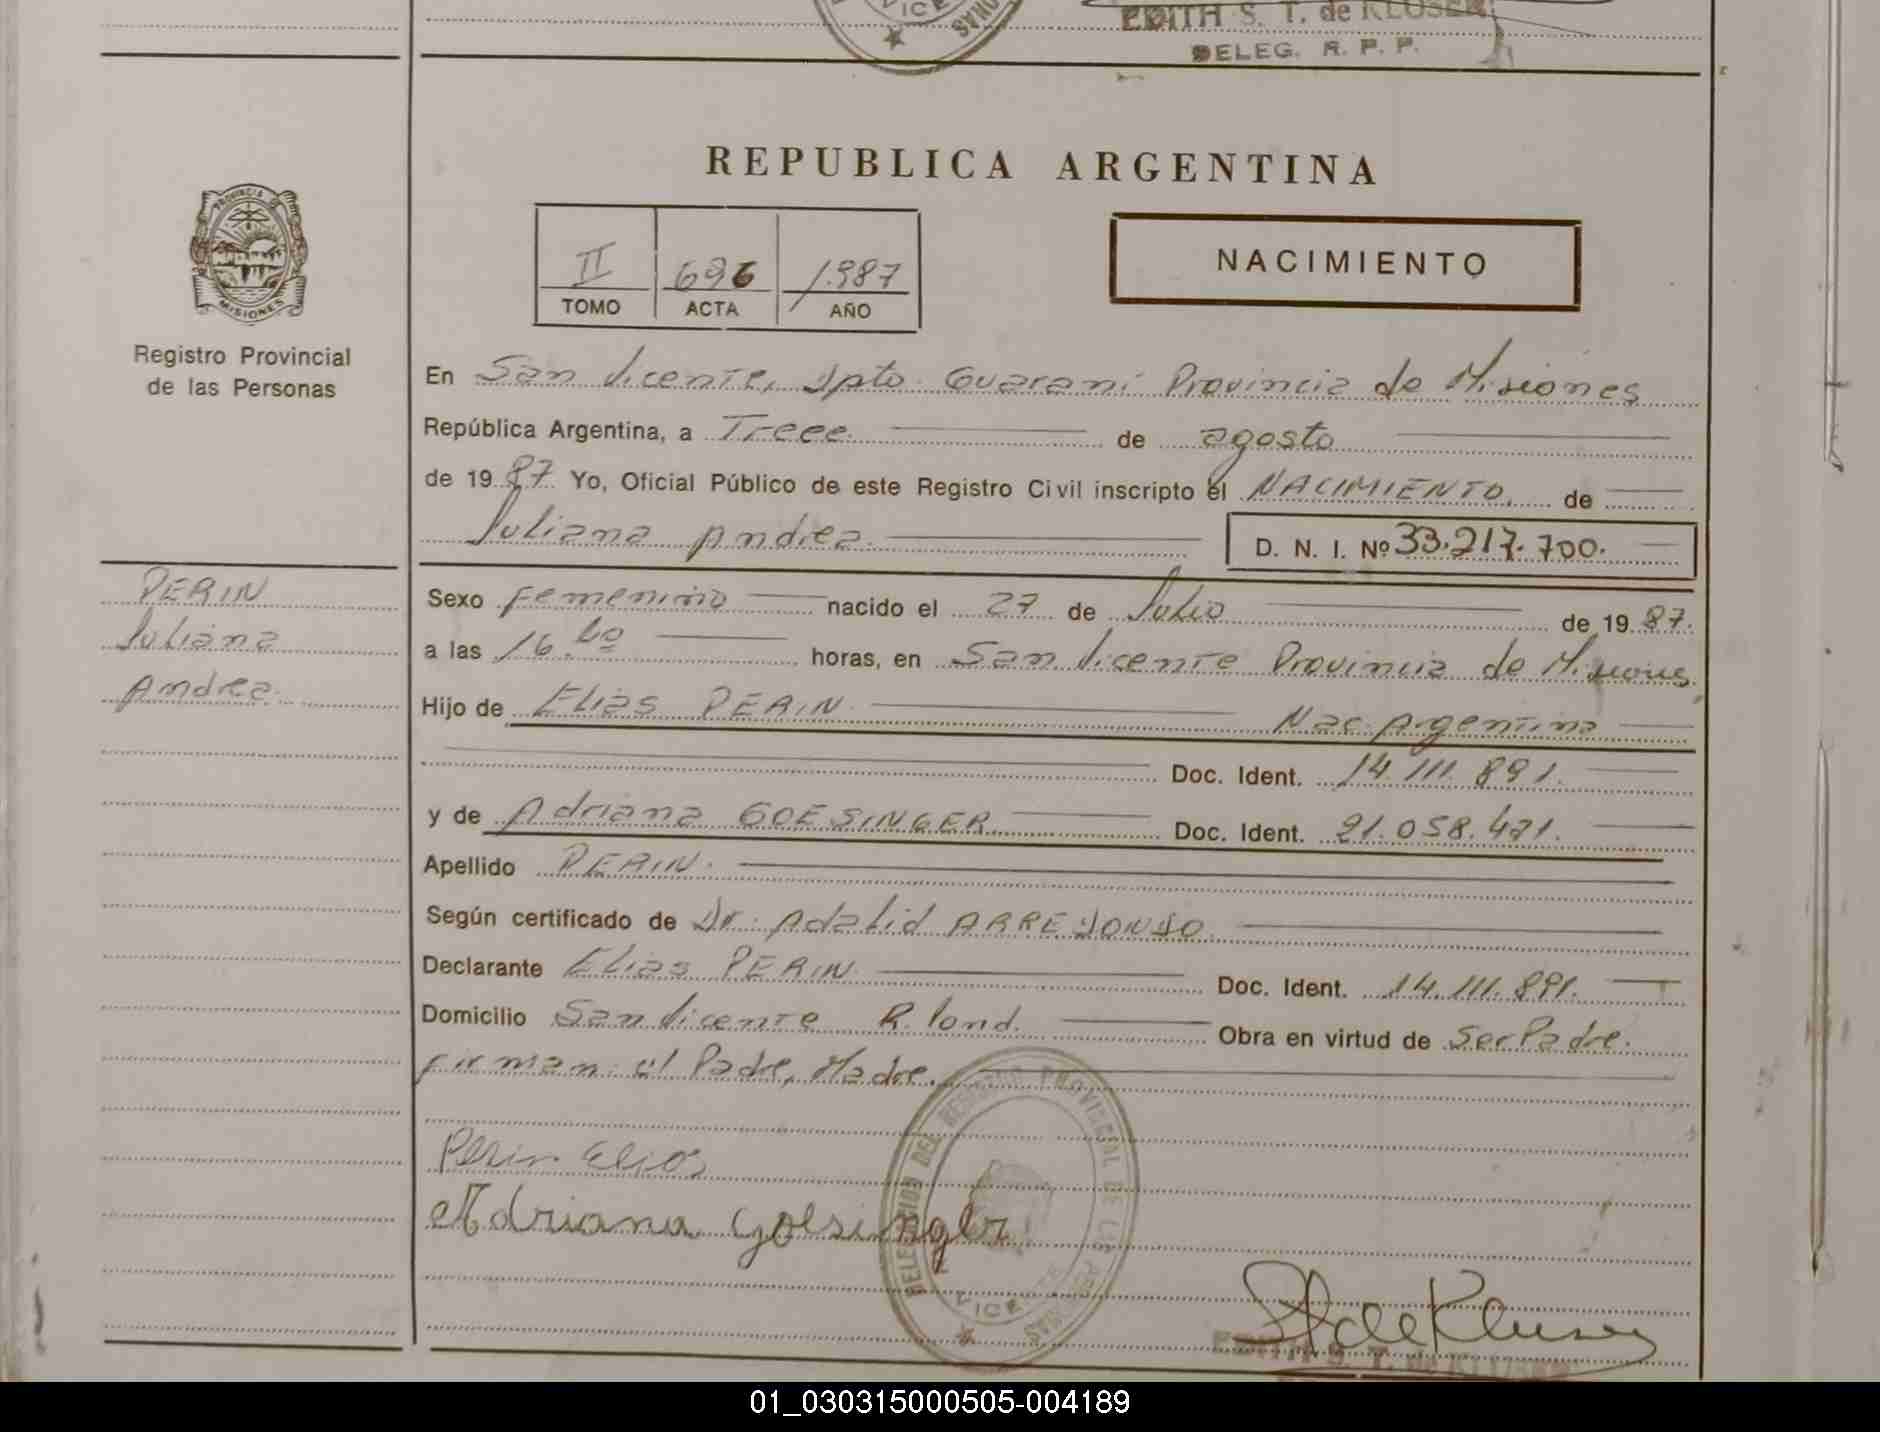 EDITH S. T. de KLUSER
DELEG. R. P. P.
REPUBLICA ARGENTINA
II 696 1.987
TOMO ACTA AÑO
NACIMIENTO
PROVINCIA DE
MISIONES
Registro Provincial
de las Personas
En San Vicente, Dpto. Guaraní Provincia de Misiones
República Argentina, a Trece de agosto
de 1987 Yo, Oficial Público de este Registro Civil inscripto el NACIMIENTO. de
Juliana Andrea. D. N. I. Nº 33.217.700.
PERIN
Juliana
Andrea.
Sexo Femenino nacido el 27 de Julio de 1987.
a las 16. horas, en San Vicente Provincia de Misiones.
Hijo de Elias PERIN. Nac. Argentina
Doc. Ident. 14.111.891.
y de Adriana GOESINGER Doc. Ident. 21.058.421.
Apellido PERIN.
Según certificado de Dr. Adalid ARREDONDO.
Declarante Elias PERIN. Doc. Ident. 14.111.891.
Domicilio San Vicente R. Pond. Obra en virtud de Ser Padre.
Firman: el Padre, Madre.
Perin Elias
Adriana Goesinger
DELEGACION DEL REGISTRO PROVINCIAL DE LAS PERSONAS
VICE
S. T. de Kluser
EDITH S. T. de KLUSER
01_030315000505-004189